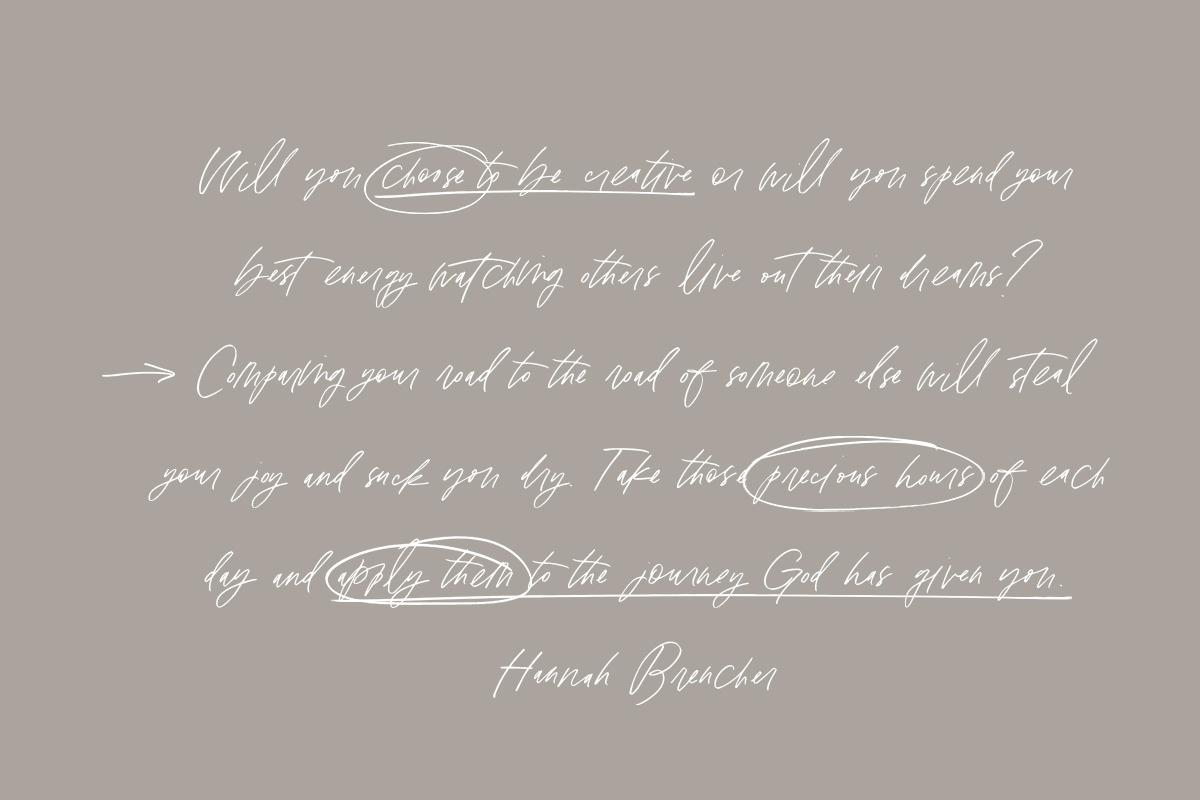 Will you choose to be creative or will you spend your
best energy watching others live out their dreams?
→ Comparing your road to the road of someone else will steal
your joy and suck you dry. Take those precious hours of each
day and apply them to the journey God has given you.
Hannah Brencher